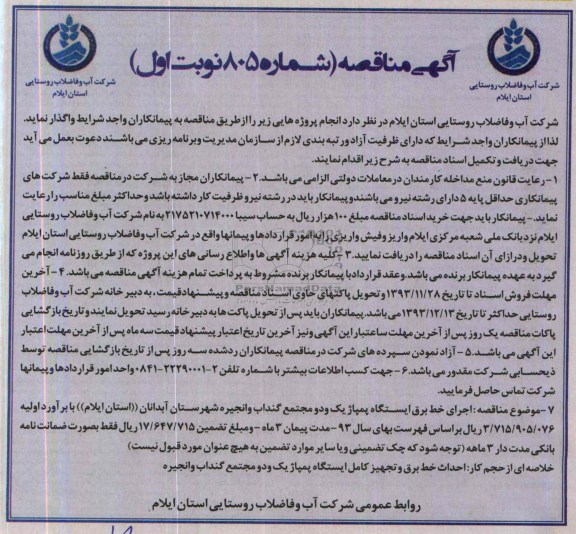 آگهی مناقصه (شماره ۸۰۵ نوبت اول)
شرکت آب وفاضلاب روستایی
استان ایلام
شرکت آب وفاضلاب روستایی
استان ایلام
شرکت آب وفاضلاب روستایی استان ایلام در نظر دارد انجام پروژه هایی زیر را از طریق مناقصه به پیمانکاران واجد شرایط واگذار نماید.
لذا از پیمانکاران واجد شرایط که دارای ظرفیت آزاد و رتبه بندی لازم از سازمان مدیریت وبرنامه ریزی می باشند دعوت بعمل می آید
جهت دریافت و تکمیل اسناد مناقصه به شرح زیر اقدام نمایند.
۱- رعایت قانون منع مداخله کارمندان در معاملات دولتی الزامی می باشد. ۲- پیمانکاران مجاز به شرکت در مناقصه فقط شرکت های
پیمانکاری حداقل پایه ۵ دارای رشته نیرو می باشند و پیمانکار باید در رشته نیرو ظرفیت کار داشته باشد و حداکثر مبلغ مناسب را رعایت
نماید. - پیمانکار باید جهت خرید اسناد مناقصه مبلغ ۱۰۰ هزار ریال به حساب سیبا ۲۱۷۵۲۱۰۷۱۴۰۰۰ به نام شرکت آب وفاضلاب روستایی
ایلام نزد بانک ملی شعبه مرکزی ایلام واریز وفیش واریزی را به امور قراردادها و پیمانها واقع در شرکت آب وفاضلاب روستایی استان ایلام
تحویل ودر ازای آن اسناد مناقصه را دریافت نمایید. ۳- کلیه هزینه آگهی ها واطلاع رسانی های این پروژه که از طریق روزنامه انجام می
گیرد به عهده پیمانکار برنده می باشد. وعقد قرارداد با پیمانکار برنده مشروط به پرداخت تمام هزینه آگهی مناقصه می باشد. ۴- آخرین
مهلت فروش اسناد تا تاریخ ۱۳۹۳/۱۱/۲۸ و تحویل پاکتهای حاوی اسناد مناقصه و پیشنهاد قیمت، به دبیر خانه شرکت آب وفاضلاب
روستایی حداکثر تا تاریخ ۱۳۹۳/۱۲/۱۳ می باشد. پیمانکاران باید پس از تحویل پاکت ها به دبیر خانه رسید تحویل نمایند و تاریخ بازگشایی
پاکات مناقصه یک روز پس از آخرین مهلت ساعت بار این آگهی ونیز آخرین تاریخ اعتبار پیشنهاد قیمت سه ماه پس از آخرین مهلت اعتبار
این آگهی می باشد. ۵- آزاد نمودن سپرده های شرکت در مناقصه پیمانکاران رد شده سه روز پس از تاریخ بازگشایی مناقصه توسط
ذیحسابی شرکت مقدور می باشد. ۶- جهت کسب اطلاعات بیشتر با شماره تلفن ۲-۲۲۲۹۰۰۰۱-۰۸۴۱ واحد امور قراردادها و پیمانها
شرکت تماس حاصل فرمایید.
۷- موضوع مناقصه: اجرای خط برق ایستگاه پمپاژ یک ودو مجتمع گنداب وانجیره شهرستان آبدانان ((استان ایلام)) با برآورد اولیه
۳/۷۱۵/۹۰۵/۰۷۶ ریال براساس فهرست بهای سال ۹۳ - مدت پیمان ۳ ماه - ومبلغ تضمین ۱۷/۶۴۷/۷۱۵ ریال فقط بصورت ضمانت نامه
بانکی مدت دار ۳ ماهه (توجه شود که چک تضمینی و یا سایر موارد تضمین به هیچ عنوان مورد قبول نیست)
خلاصه ای از حجم کار: احداث خط برق و تجهیز کامل ایستگاه پمپاژ یک ودو مجتمع گنداب وانجیره
روابط عمومی شرکت آب وفاضلاب روستایی استان ایلام